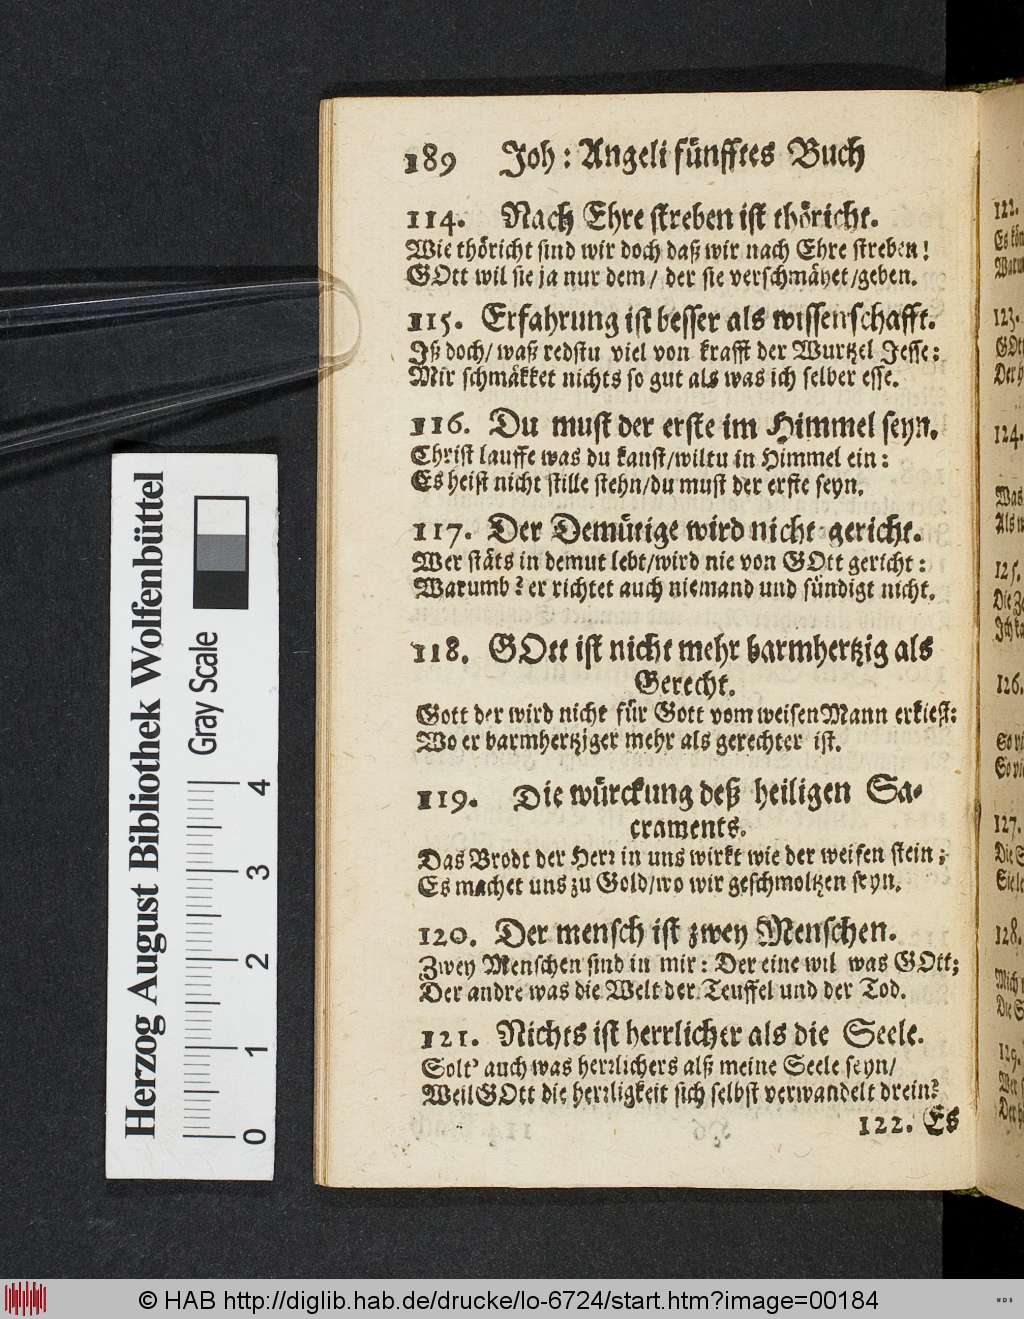 189 Joh: Angeli fünfftes Buch
114. Nach Ehre streben ist thöricht.
Wie thöricht sind wir doch daß wir nach Ehre streben!
GOtt wil sie ja nur dem/ der sie verschmähet/geben.
115. Erfahrung ist besser als wissenschafft.
Iß doch/ waß redstu viel von krafft der Wurtzel Jesse:
Mir schmäkket nichts so gut als was ich selber esse.
116. Du must der erste im Himmel seyn.
Christ lauffe was du kanst/wiltu in Himmel ein:
Es heist nicht stille stehn/du must der erste seyn.
117. Der Demütige wird nicht gericht.
Wer stäts in demut lebt/wird nie von GOtt gericht:
Warumb? er richtet auch niemand und sündigt nicht.
118. GOtt ist nicht mehr barmhertzig als
Gerecht.
Gott der wird nicht für Gott vom weisen Mann erkiest:
Wo er barmhertziger mehr als gerechter ist.
119. Die würckung deß heiligen Sa-
craments.
Das Brodt der Herr in uns wirkt wie der weisen stein;
Es machet uns zu Gold/wo wir geschmoltzen seyn.
120. Der mensch ist zwey Menschen.
Zwey Menschen sind in mir: Der eine wil was GOtt;
Der andre was die Welt der Teuffel und der Tod.
121. Nichts ist herrlicher als die Seele.
Solt' auch was herrlichers alß meine Seele seyn/
Weil GOtt die herrligkeit sich selbst verwandelt drein?
122. Es
122.
Es kön
Waru
123.
GOtt
Der h
124.
Was
Als w
125.
Die Ze
Ich ka
126.
So vi
So vi
127.
Die S
Seele
128.
Mich
Die S
129.
Wer
Der h
Herzog August Bibliothek Wolfenbüttel
Gray Scale
0 1 2 3 4
© HAB http://diglib.hab.de/drucke/lo-6724/start.htm?image=00184